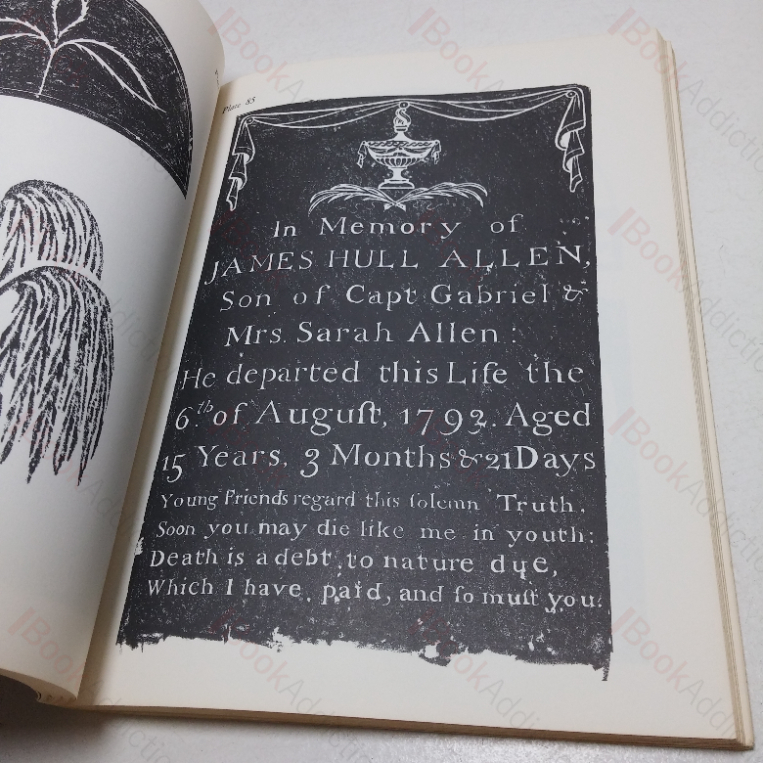 Plate 85
In Memory of
JAMES HULL ALLEN,
Son of Capt Gabriel &
Mrs. Sarah Allen :
He departed this Life the
6.th of Auguſt, 1793. Aged
15 Years, 3 Months & 21 Days
Young Friends regard this ſolemn Truth,
Soon you may die like me in youth:
Death is a debt to nature due,
Which I have paid, and ſo muſt you.
BookAddiction